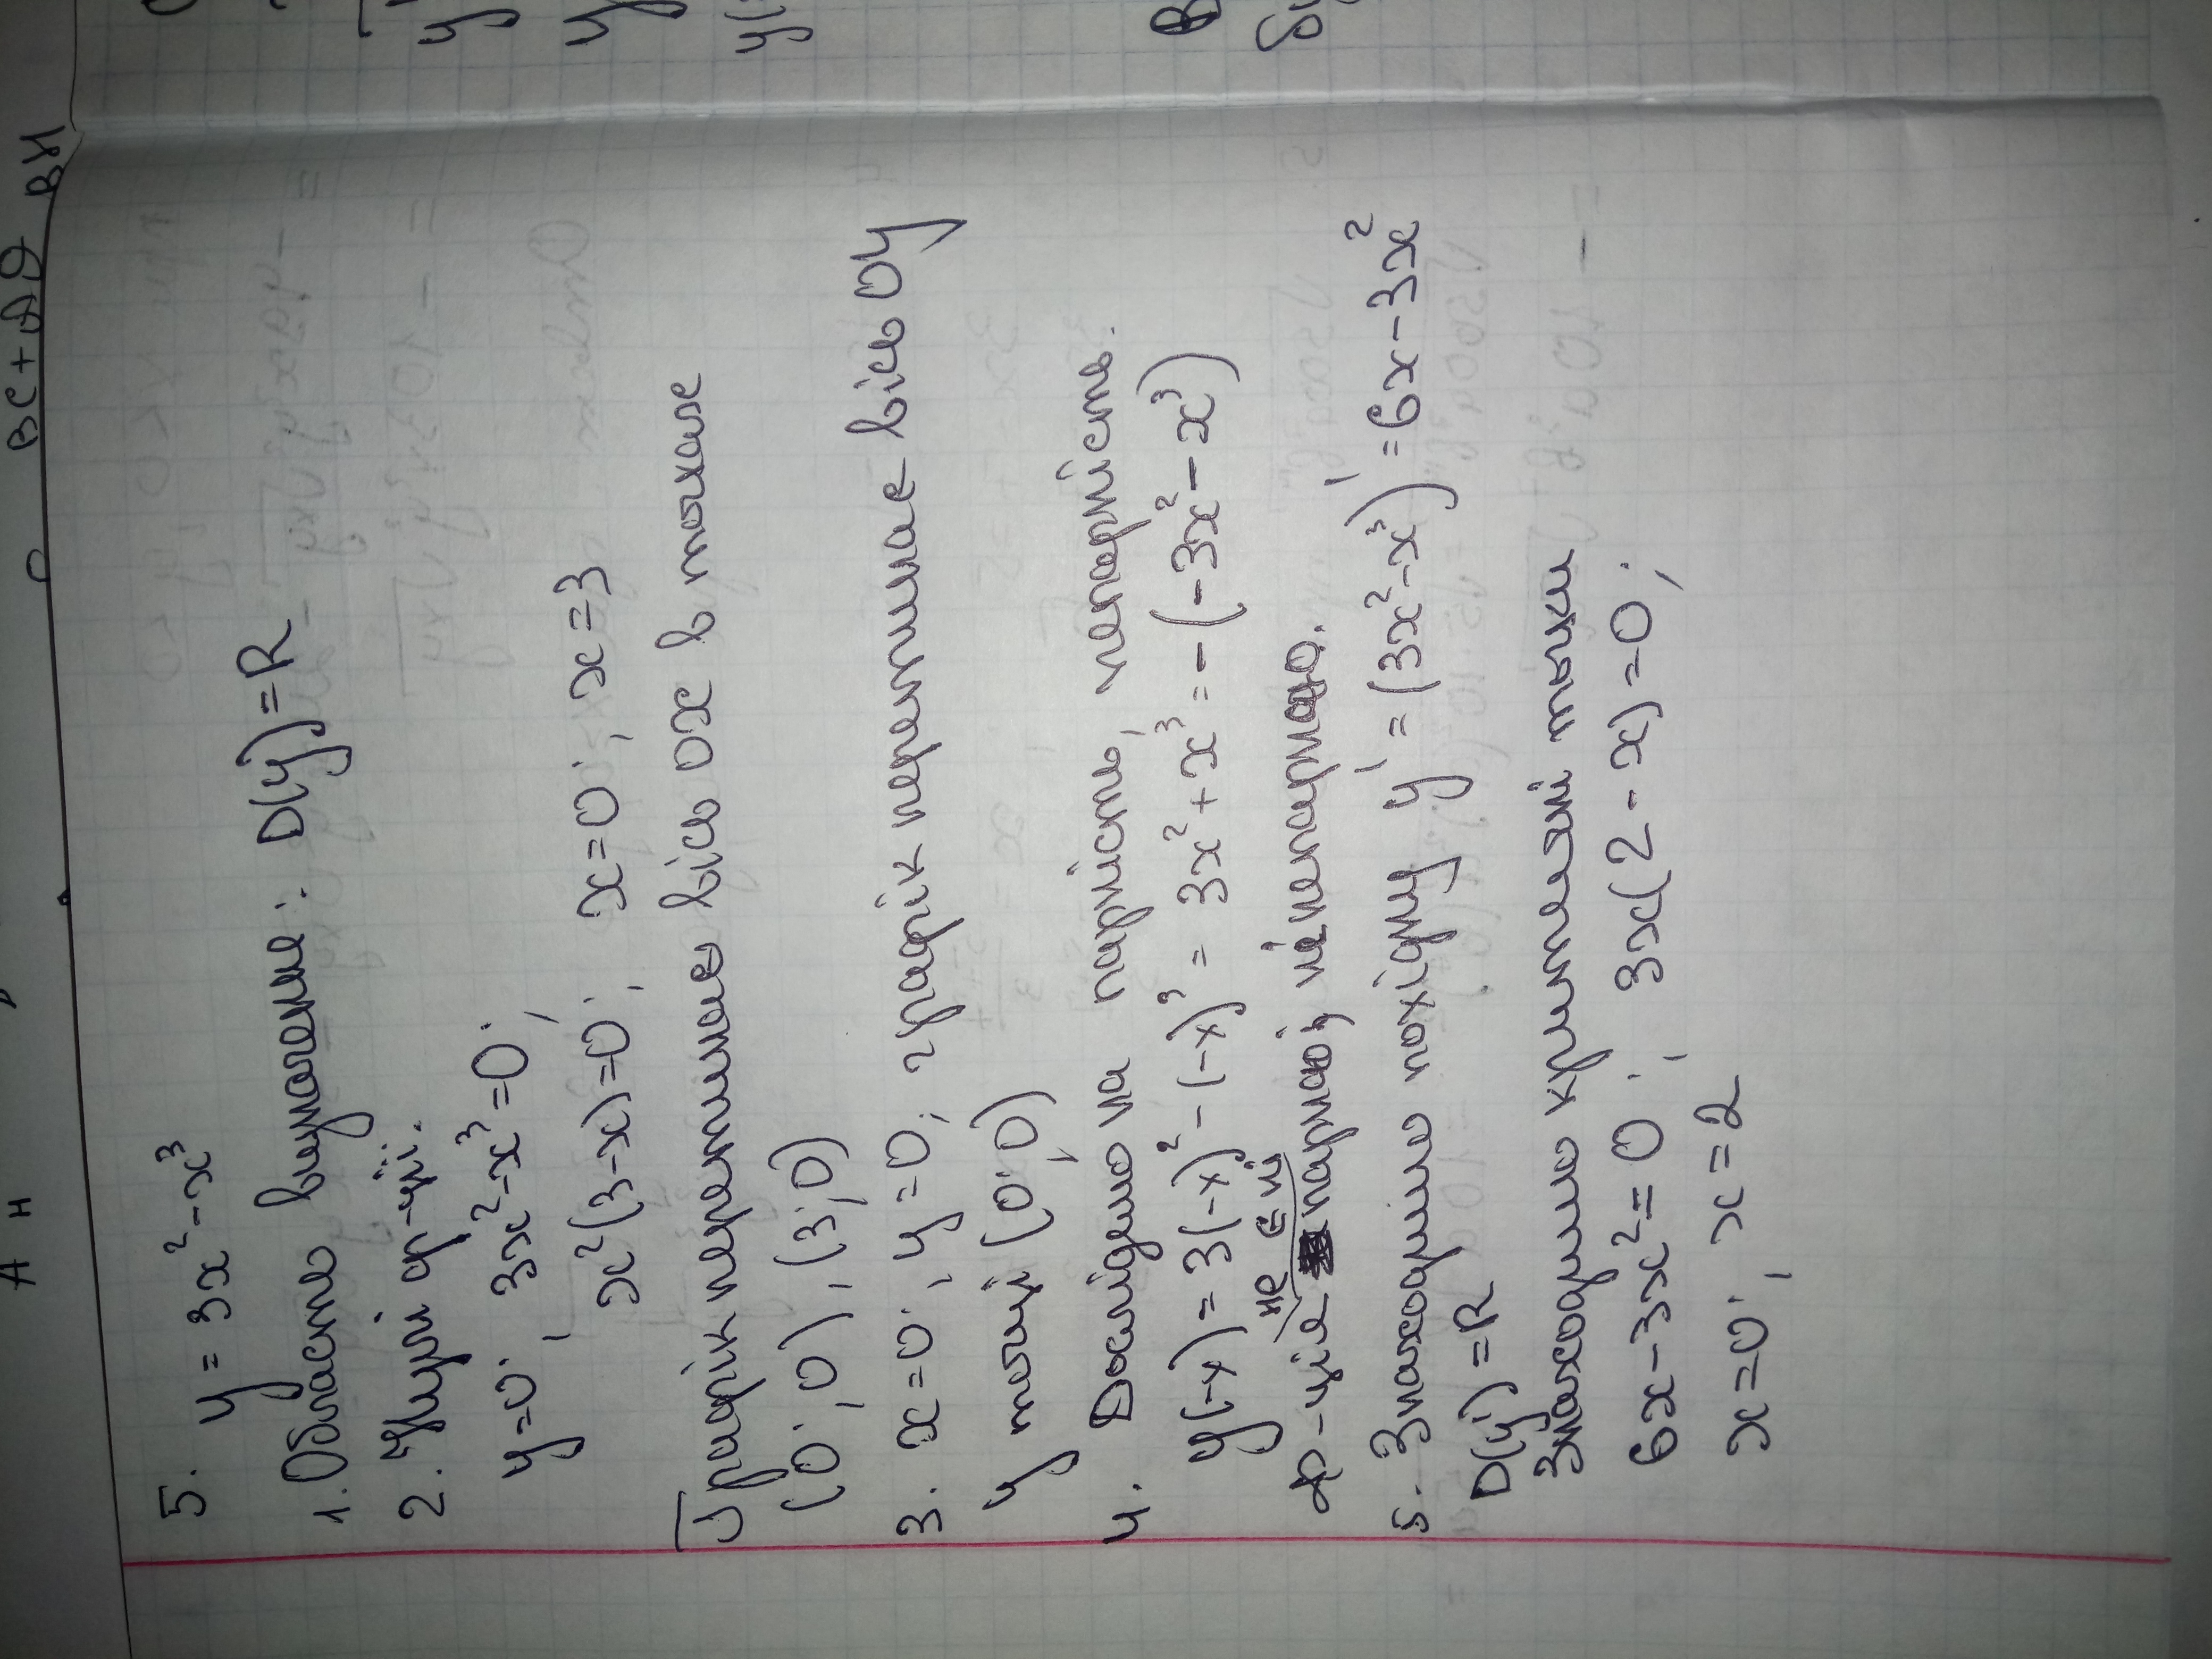 5. y = 3x² - x³
1. Область визначення: D(y)=R
2. Нулі ф-ції.
y=0; 3x²-x³=0;
x²(3-x)=0; x=0; x=3
Графік перетинає вісь OX в точках
(0;0), (3;0)
3. x=0; y=0; графік перетинає вісь OY
у точці (0;0)
4. Дослідемо на парність, непарність.
y(-x) = 3(-x)² - (-x)³ = 3x² + x³ = -(-3x² - x³)
ф-ція не є ні парною, ні непарною.
5. Знаходимо похідну y' = (3x²-x³)' = 6x-3x²
D(y') = R
Знаходимо критичні точки
6x-3x²=0; 3x(2-x)=0;
x=0; x=2
BC+AD BH
A H